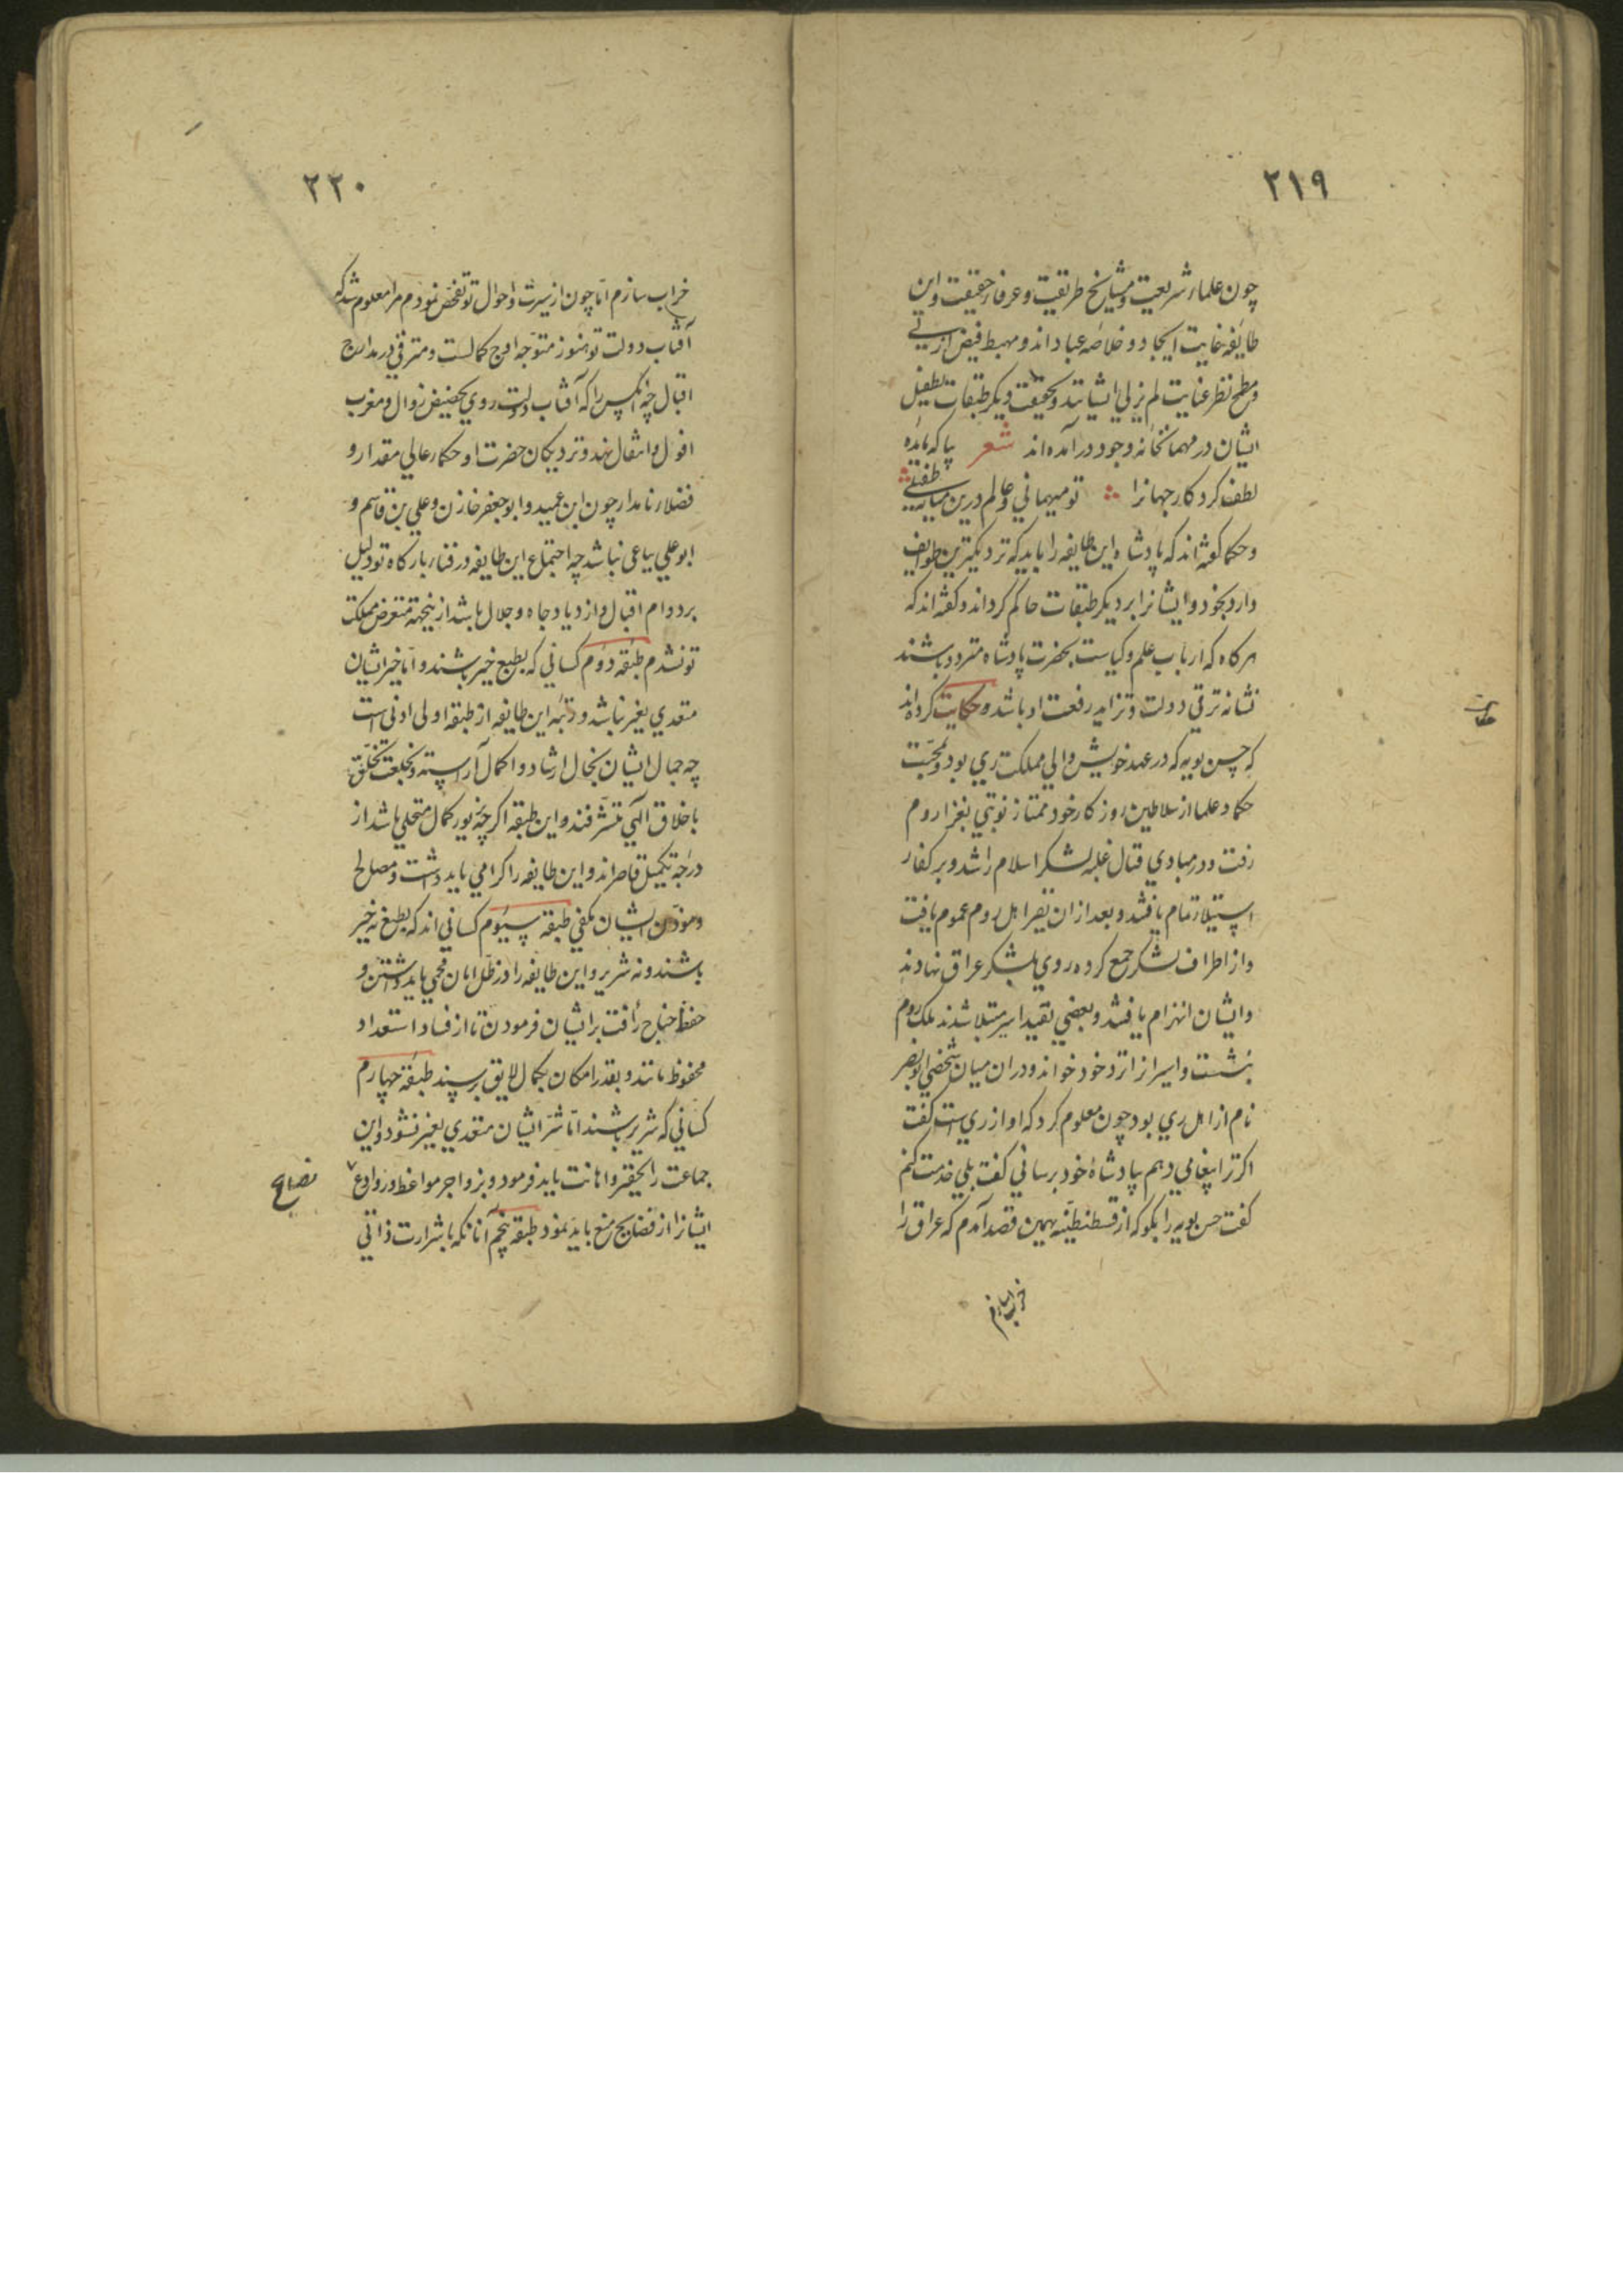 ۲۱۹
چون علماء شریعت و مشایخ طریقت و عرفاء حقیقت و این
طایفه غایت ایجاد و خلاصه عباد اند و مهبط فیض ازلی
و مطمح نظر عنایت لم یزلی ایشانند و بحقیقت دیگر طبقات بطفیل
ایشان در مهمانخانه وجود در آمده اند شعر پا که مایده
لطف کردکار جهانرا تو میهمانی و عالم درین میانه طفیلی
و حکما گفته اند که پادشاه این طایفه را باید که نزدیکترین طوایف
دارد بخود و ایشانرا بر دیگر طبقات حاکم گرداند و گفته اند که
هرکاه که ارباب علم و کیاست بحضرت پادشاه متردد باشند
نشانه ترقی دولت و تزاید رفعت او باشد و حکایت کرده اند
حکایت
که حسن بویه که در عهد خویش والی مملکت ری بود و بمحبت
حکما و علما از سلاطین روزکار خود ممتاز نوبتی بغزا روم
رفت و در مبادی قتال غلبه لشکر اسلام را شد و بر کفار
استیلاء تمام یافتند و بعد از ان نفر اهل روم عموم یافت
و از اطراف لشکر جمع کرده روی بلشکر عراق نهادند
و ایشان انهزام یافتند و بعضی بقید اسیر مبتلا شدند ملک روم
بنشست و اسیرانرا نزد خود خواند و در ان میان شخصی ابو نصر
نام از اهل ری بود چون معلوم کرد که او از ری است گفت
اکر ترا پیغامی دهم بپادشاه خود برسانی گفت بلی خدمت کنم
گفت حسن بویه را بگو که از قسطنطنیه بهمین قصد آمدم که عراق را
خراب سازم
۲۲۰
خراب سازم اما چون از سیرت و احوال تو تفحص نمودم مرا معلوم شد که
آفتاب دولت تو هنوز متوجه اوج کمالست و مترقی در مدارج
اقبال چه آنکس را که آفتاب دولت روی بحضیض زوال و مغرب
افول و انتقال نهد و نزدیکان حضرت او حکماء عالی مقدار و
فضلاء نامدار چون ابن عمید و ابو جعفر خازن و علی بن قاسم و
ابو علی بیاعی نباشد چه اجتماع این طایفه در فناء بارکاه تو دلیل
بر دوام اقبال و ازدیاد جاه و جلال باشد ازینجهة متعرض مملکت
تو نشدم طبقه دوم کسانی که بطبع خیر باشند و اما خیر ایشان
متعدی بغیر نباشد و رتبه این طایفه از طبقه اولی ادنی است
چه جمال ایشان بخال ارشاد و اکمال آراسته و بخلعت تخلق
باخلاق الهی متشرفند و این طبقه اکرچه بنور کمال متحلی باشد از
درجه تکمیل قاصر اند و این طایفه را کرامی باید داشت و مصالح
و مؤن ایشان مکفی طبقه سیوم کسانی اند که بطبع نه خیر
باشند و نه شریر و این طایفه را در ظل امان محمی باید داشتن و
حفظ جناح رأفت بر ایشان فرمودن تا از فساد استعداد
محفوظ مانند و بقدر امکان بکمال لایق برسند طبقه چهارم
کسانی که شریر باشند اما شر ایشان متعدی بغیر نشود و این
جماعت را تحقیر و اهانت باید فرمود و بزواجر مواعظ و روادع
نصایح
ایشانرا از فضایح منع باید نمود طبقه پنجم آنانکه با شرارت ذاتی